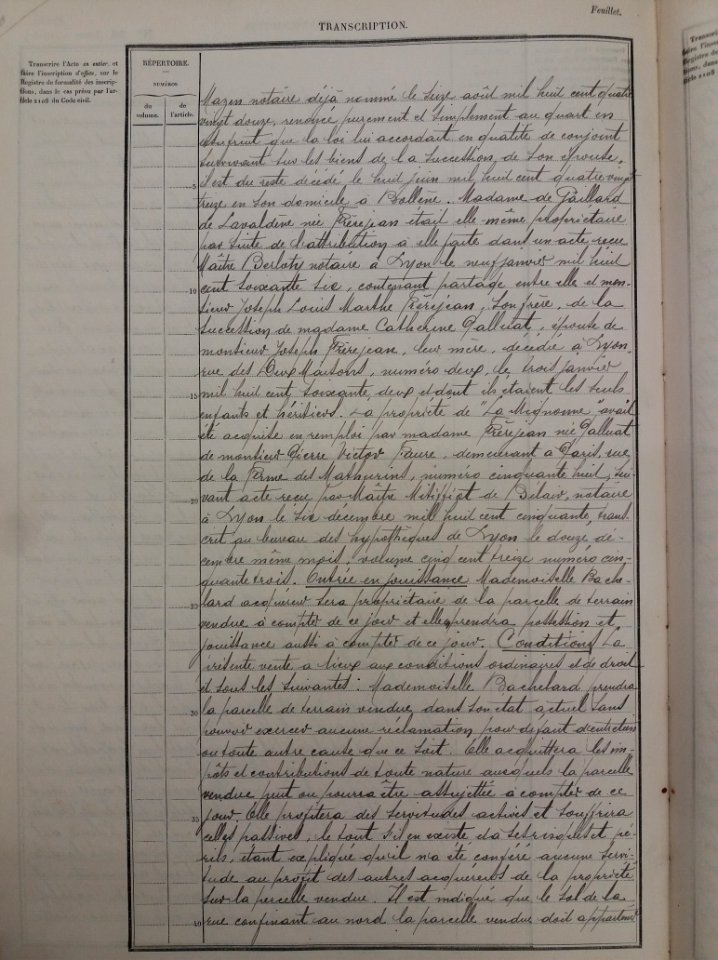 Feuillet.
TRANSCRIPTION.
Transcrire l'Acte en entier, et
faire l'inscription d'office, sur le
Registre de formalité des inscrip-
tions, dans le cas prévu par l'ar-
ticle 2108 du Code civil.
RÉPERTOIRE.
NUMÉROS
du volume.
de l'article.
Mazen notaire déjà nommé le seize août mil huit cent quatre
vingt douze, renoncé purement et simplement au quart en
usufruit que la loi lui accordait en qualité de conjoint
survivant sur les biens de la succession de son épouse.
Il est du reste décédé le huit juin mil huit cent quatre vingt
5
treize en son domicile à Bollène. Madame de Gaillard
de Lavaldène née Frèrejean était elle même propriétaire
par suite de l'attribution à elle faite dans un acte reçu
Maître Berloty notaire à Lyon le neuf janvier mil huit
cent soixante six, contenant partage entre elle et mon-
10
sieur Joseph Louis Marthe Frèrejean, son frère, de la
succession de madame Catherine Palluat, épouse de
monsieur Joseph Frèrejean, leur mère, décédée à Lyon,
rue des Deux Maisons, numéro deux, le trois janvier
mil huit cent soixante deux et dont ils étaient les seuls
15
enfants et héritiers. La propriété de "La Mignonne" avait
été acquise en remploi par madame Frèrejean née Palluat
de monsieur Pierre Victor Faure, demeurant à Paris, rue
de la Ferme des Mathurins, numéro cinquante huit, sui-
vant acte reçu par Maître Mitiffiot de Bélair, notaire
20
à Lyon le six décembre mil huit cent cinquante, trans-
crit au bureau des hypothèques de Lyon le douze dé-
cembre même mois, volume cinq cent treize numéro cin-
quante trois. Entrée en jouissance Mademoiselle Bache-
lard acquéreur sera propriétaire de la parcelle de terrain
25
vendue à compter de ce jour et elle prendra possession et
jouissance aussi à compter de ce jour. Conditions La
présente vente a lieu aux conditions ordinaires et de droit
et sous les suivantes : Mademoiselle Bachelard prendra
la parcelle de terrain vendue dans son état actuel sans
30
pouvoir exercer aucune réclamation pour défaut d'entretien
ou toute autre cause que ce soit. Elle acquittera les im-
pôts et contributions de toute nature auxquels la parcelle
vendue peut ou pourra être assujettie à compter de ce
jour. Elle profitera des servitudes actives et souffrira
35
celles passives, le tout s'il en existe à ses risques et pé-
rils, étant expliqué qu'il n'a été conféré aucune servi-
tude au profit des autres acquéreurs de la propriété
sur la parcelle vendue. Il est indiqué que le sol de la
rue confinant au nord la parcelle vendue doit appartenir
40